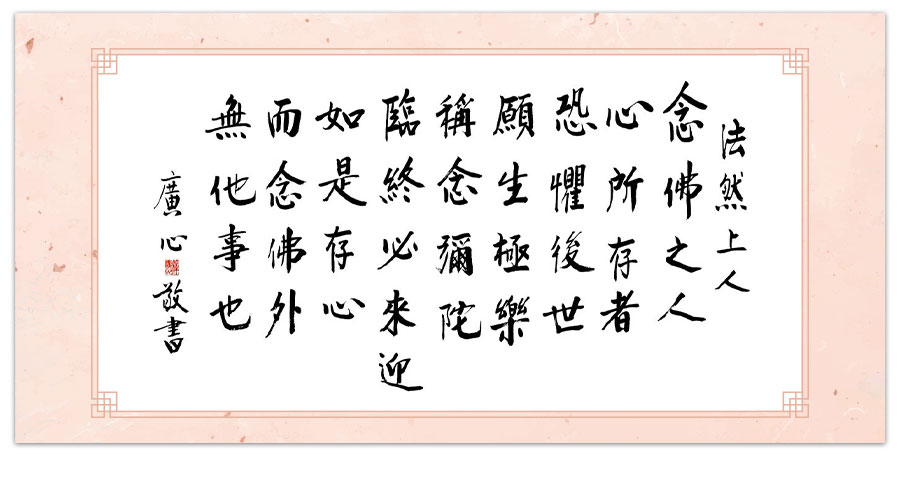 法然上人
念佛之人
心所存者
恐懼後世
願生極樂
稱念彌陀
臨終必來迎
如是存心
而念佛外
無他事也
廣心敬書